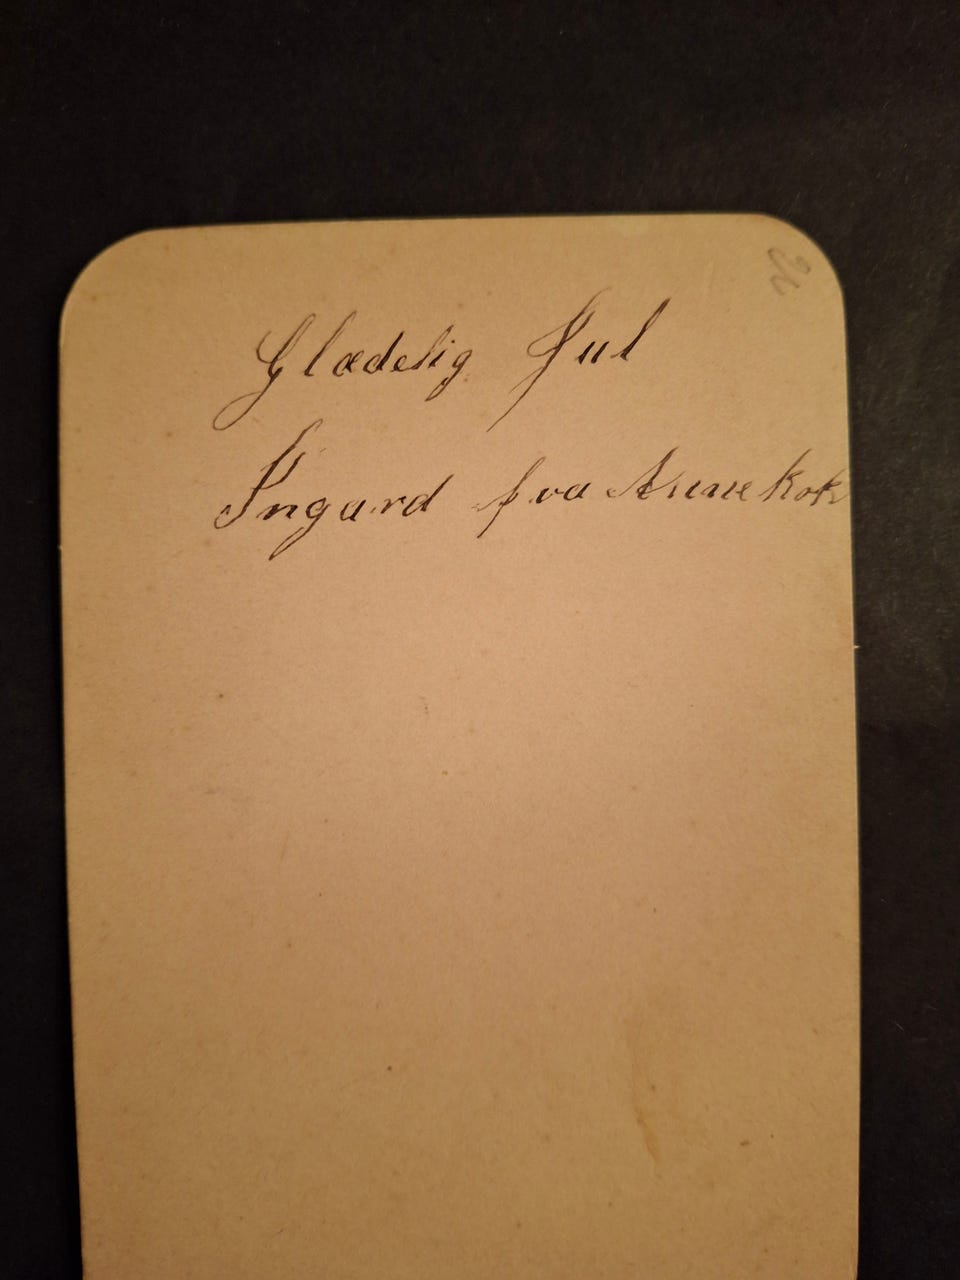 Glædelig Jul
Ingard fra Anne Kok